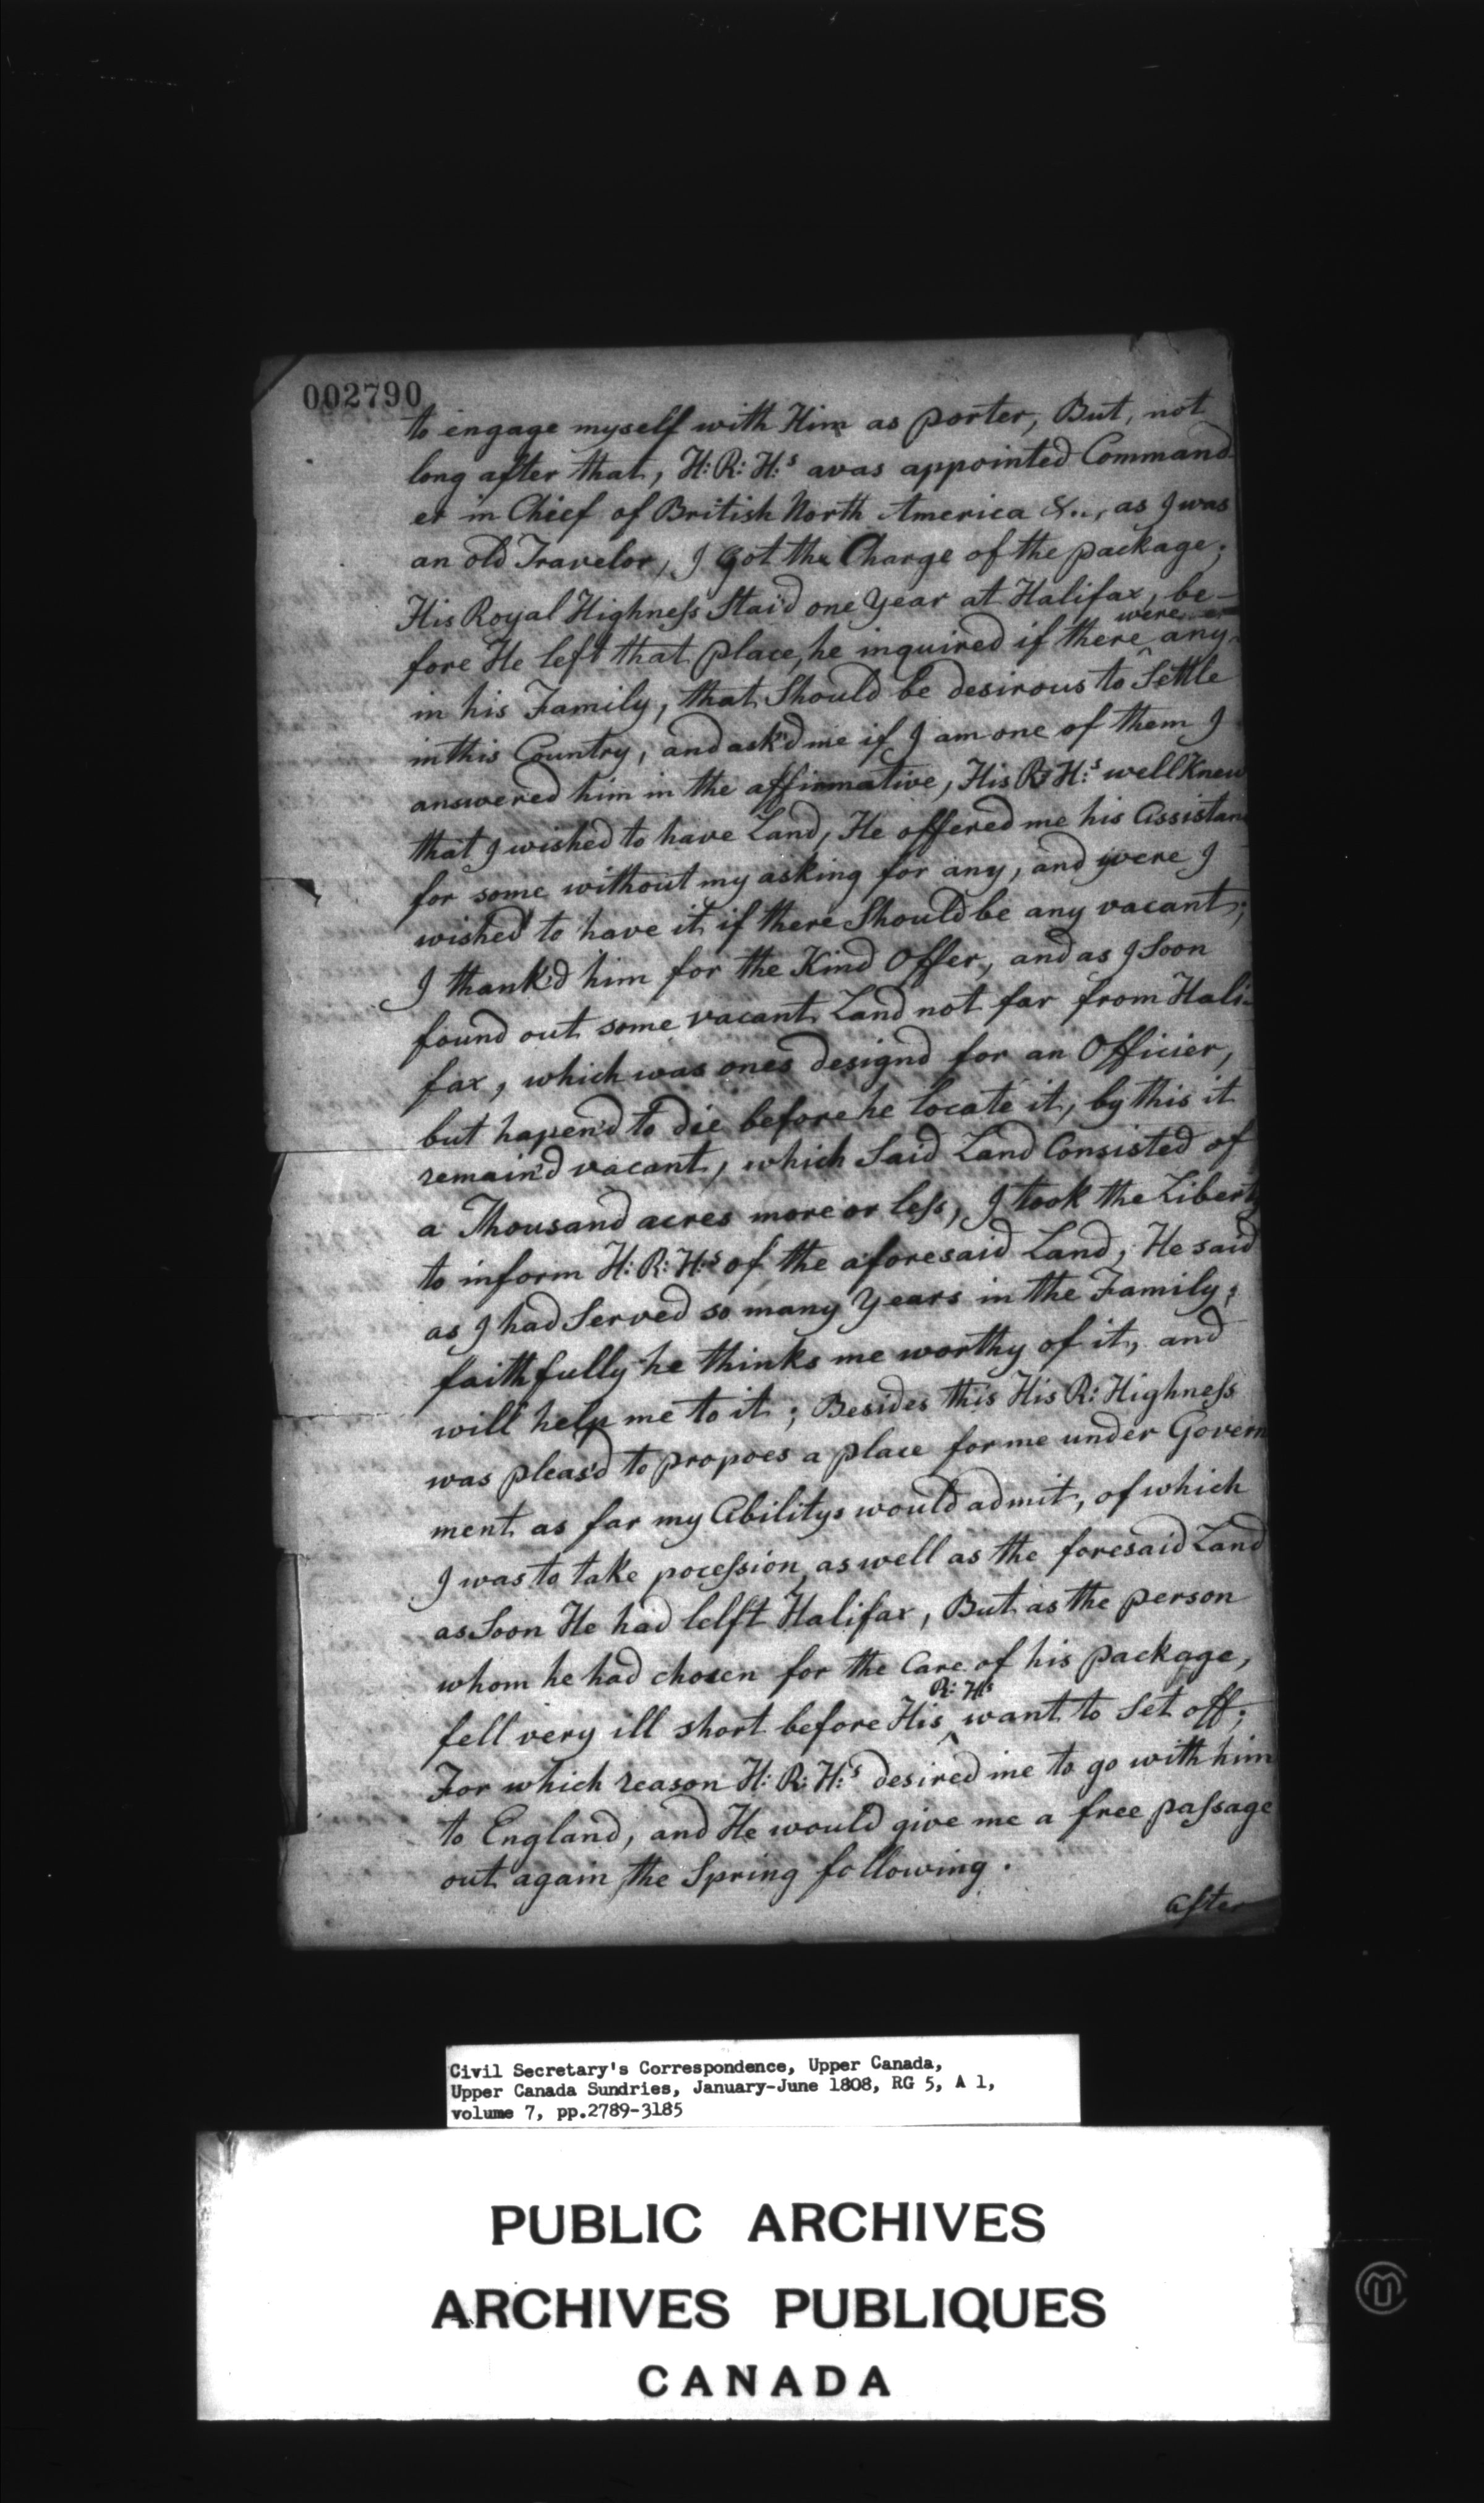 002790
to engage myself with Him as porter, But, not
long after that, H: R: H:s avas appointed Command
er in Chief of British North America &.., as I was
an old Travelor, I got the Charge of the package;
His Royal Highness Staid one Year at Halifax, be-
fore He left that place, he inquired if there were any
in his Family, that Should be desirous to Settle
in this Country, and ask'd me if I am one of them I
answered him in the affirmative, His R: H:s well Knew
that I wished to have Land, He offered me his Assistan
for some without my asking for any, and were I
wished to have it if there Should be any vacant;
I thank'd him for the Kind Offer, and as I Soon
found out some vacant Land not far from Hali-
fax, which was ones designd for an Officier,
but hapen'd to die before he locate it, by this it
remain'd vacant, which Said Land Consisted of
a Thousand acres more or less, I took the Liberty
to inform H: R: H:s of the aforesaid Land; He said
as I had Served so many Years in the Family;
faithfully he thinks me worthy of it, and
will help me to it; Besides this His R: Highness
was pleas'd to propoes a place for me under Govern
ment as far my Abilitys would admit, of which
I was to take pocession, as well as the foresaid Land
as Soon He had lelft Halifax, But as the person
whom he had chosen for the Care of his package,
fell very ill short before His R: Hs want to Set off;
For which reason H: R: H:s desired me to go with him
to England, and He would give me a free passage
out again the Spring following.
After
Civil Secretary's Correspondence, Upper Canada,
Upper Canada Sundries, January-June 1808, RG 5, A 1,
volume 7, pp.2789-3185
PUBLIC ARCHIVES
ARCHIVES PUBLIQUES
CANADA